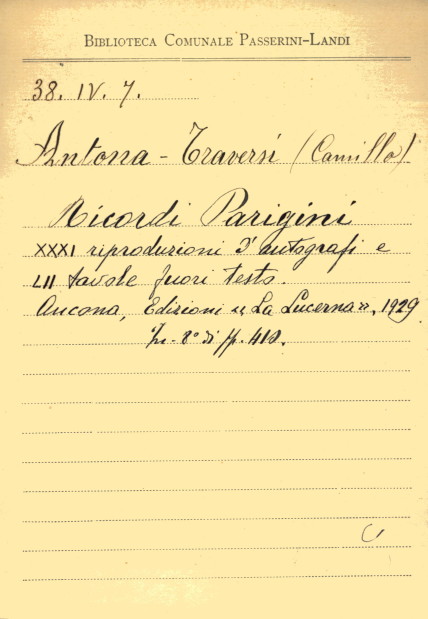 BIBLIOTECA COMUNALE PASSERINI-LANDI
38. IV. 7.
Antona-Traversi (Camillo)
Ricordi Parigini
XXXI riproduzioni d'autografi e
LII tavole fuori testo.
Ancona, Edizioni «La Lucerna», 1929
In-8° di pp.